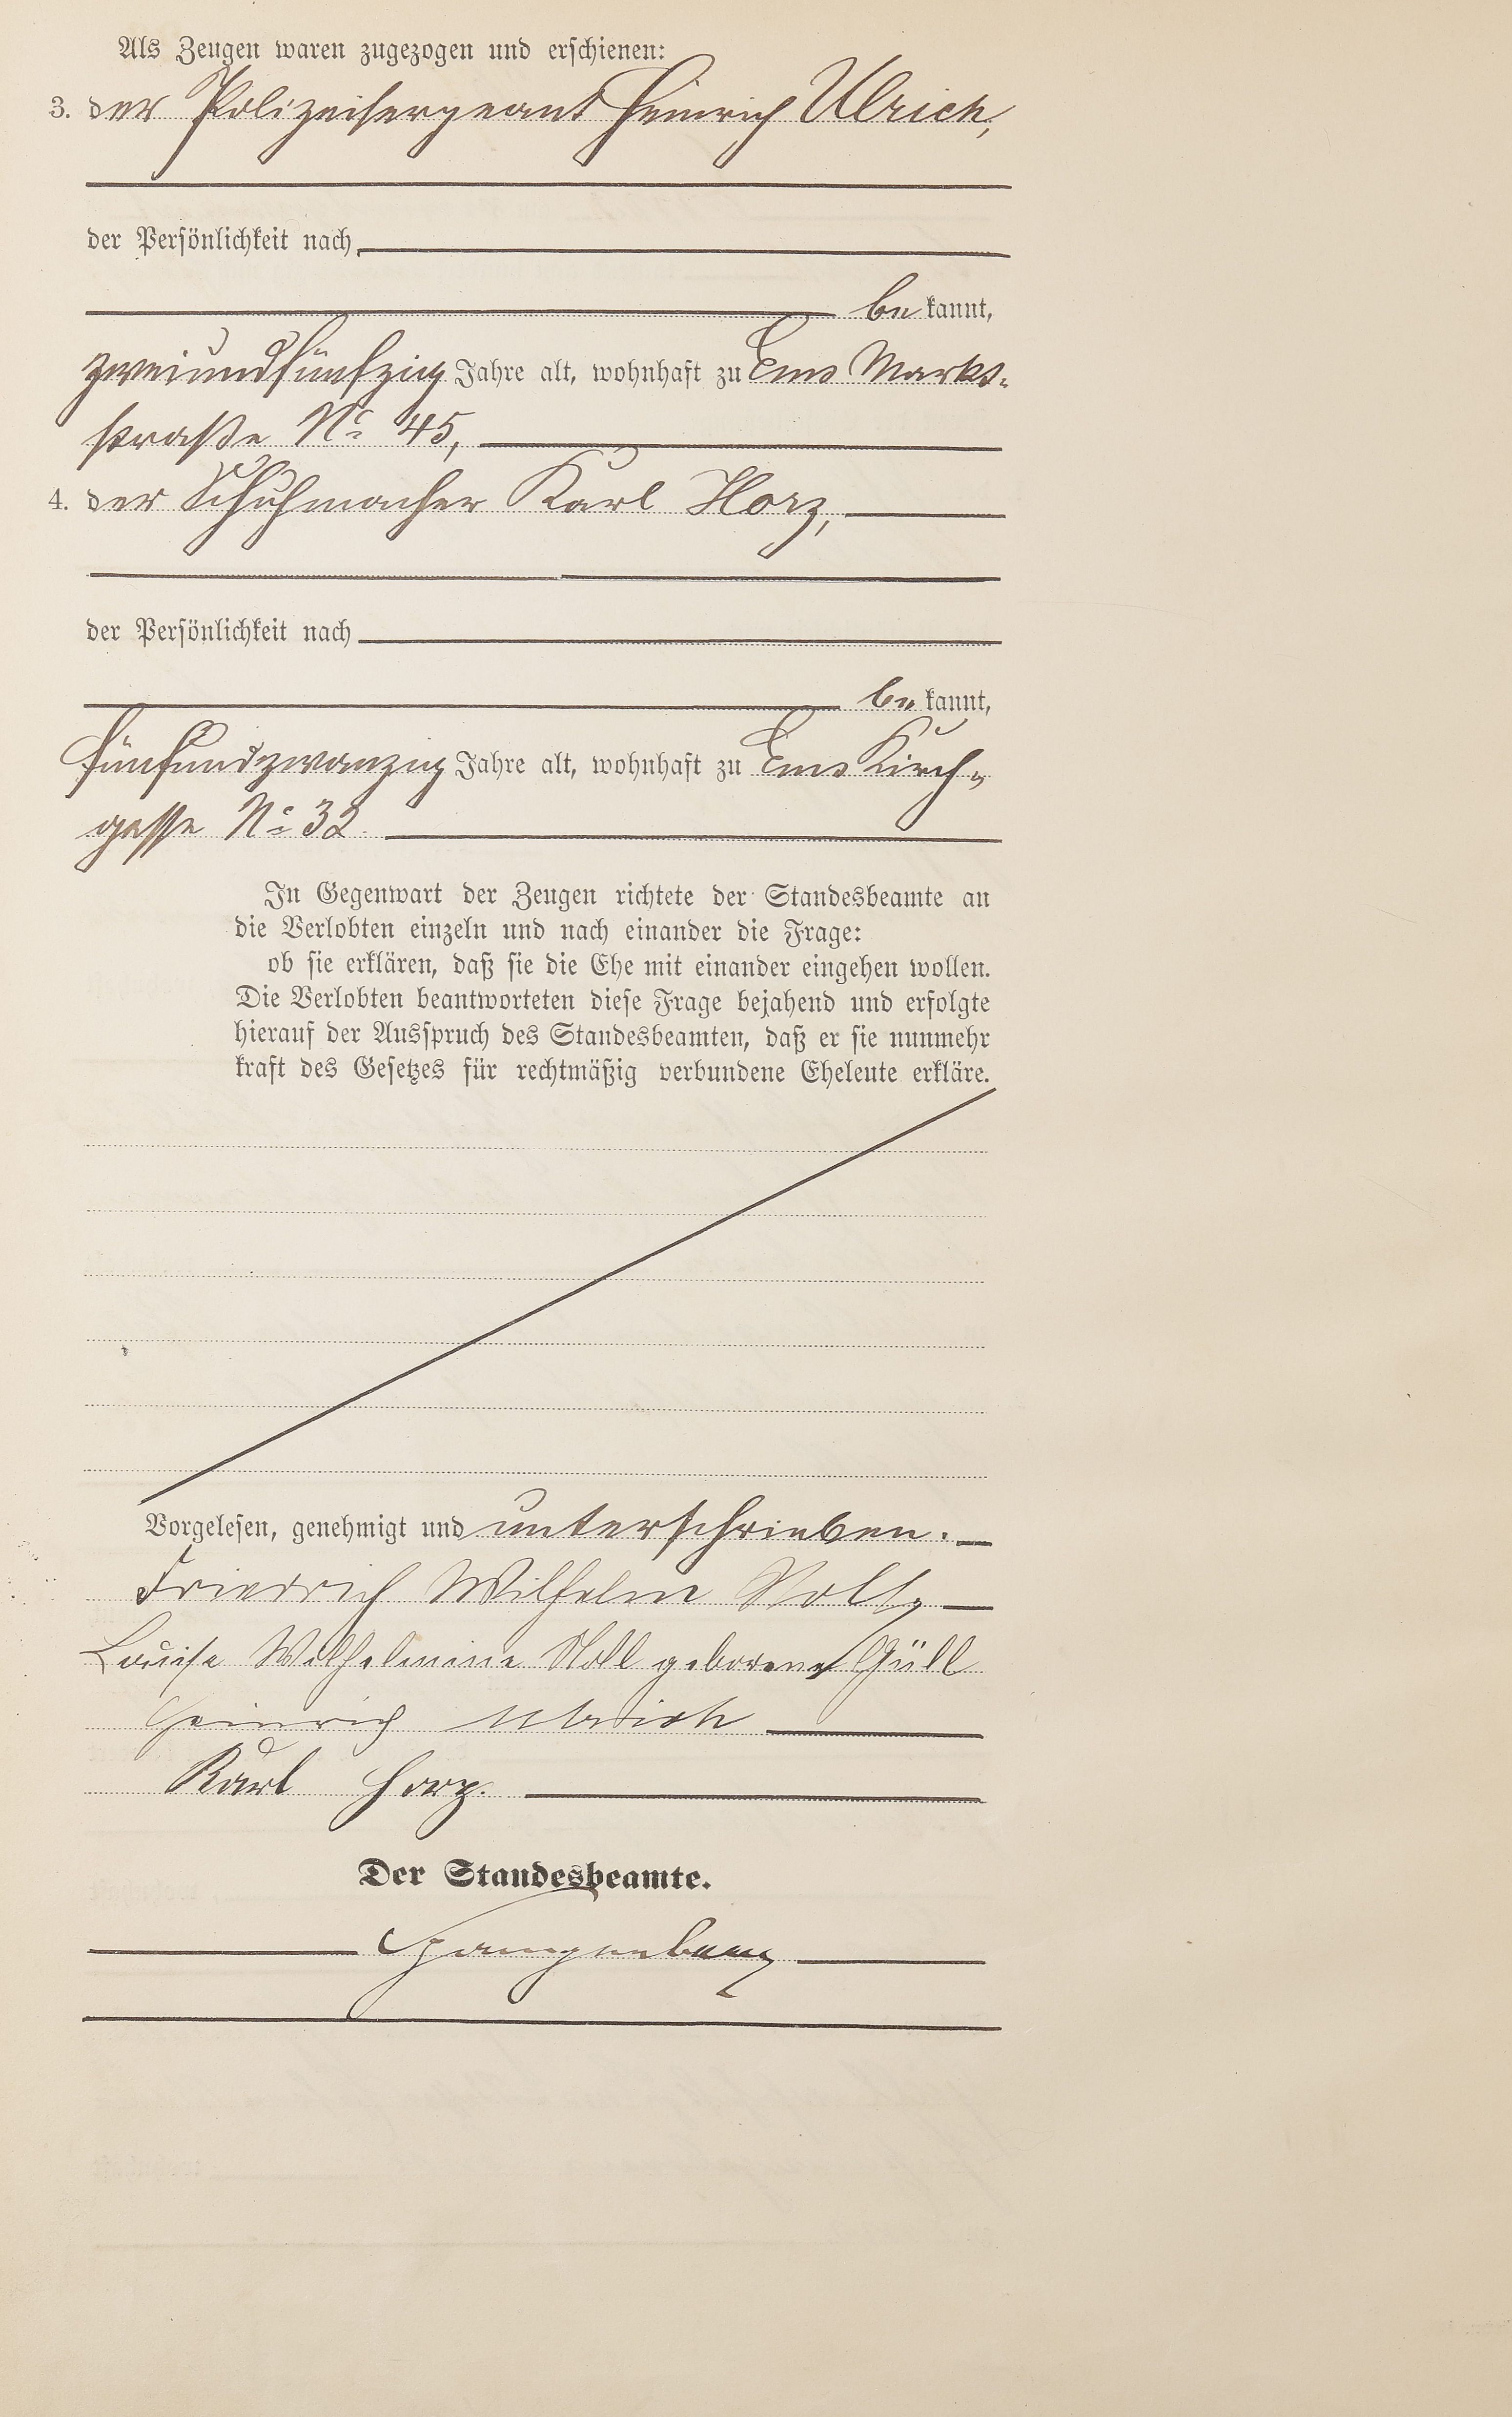 Als Zeugen waren zugezogen und erschienen:
3. der Polizeisergeant Heinrich Ulrich,
der Persönlichkeit nach
be kannt,
zweiundfünfzig Jahre alt, wohnhaft zu Ems Markt-
straße No 45,
4. der Schuhmacher Karl Horz,
der Persönlichkeit nach
be kannt,
fünfundzwanzig Jahre alt, wohnhaft zu Ems Kirch-
gasse No 32
In Gegenwart der Zeugen richtete der Standesbeamte an
die Verlobten einzeln und nach einander die Frage:
ob sie erklären, daß sie die Ehe mit einander eingehen wollen.
Die Verlobten beantworteten diese Frage bejahend und erfolgte
hierauf der Ausspruch des Standesbeamten, daß er sie nunmehr
kraft des Gesetzes für rechtmäßig verbundene Eheleute erkläre.
Vorgelesen, genehmigt und unterschrieben.
Friedrich Wilhelm
Louise Wilhelmine Noll geborene Güll
Heinrich Ulrich
Karl Horz.
Der Standesbeamte.
Spangenberg